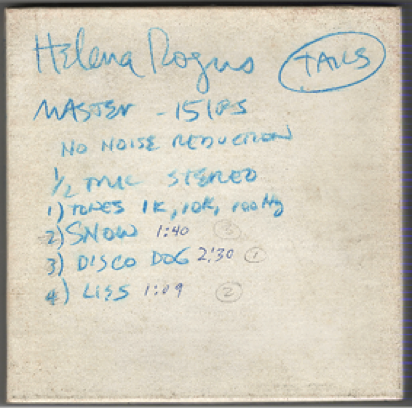 Helena Rogus TAILS
MASTER - 15 IPS
NO NOISE REDUCTION
1/2 TRK STEREO
1) TONES 1K, 10K, 100 Hz
2) SNOW 1:40 3
3) DISCO DOG 2:30 1
4) LISS 1:09 2